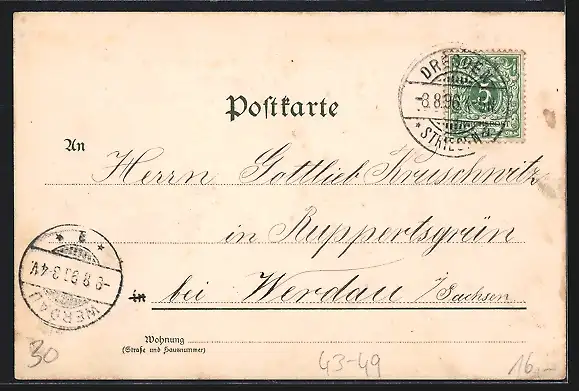 DRESDEN
-8.8.96
* STRIESEN *
5
REICHSPOST
Postkarte
An
Herrn Gottlieb Kruschwitz
in Ruppertsgrün
in bei Werdau /Sachsen
* * *
-9.8.96.3-4V.
WERDAU
Wohnung
(Straße und Hausnummer)
30
43-49
16,-